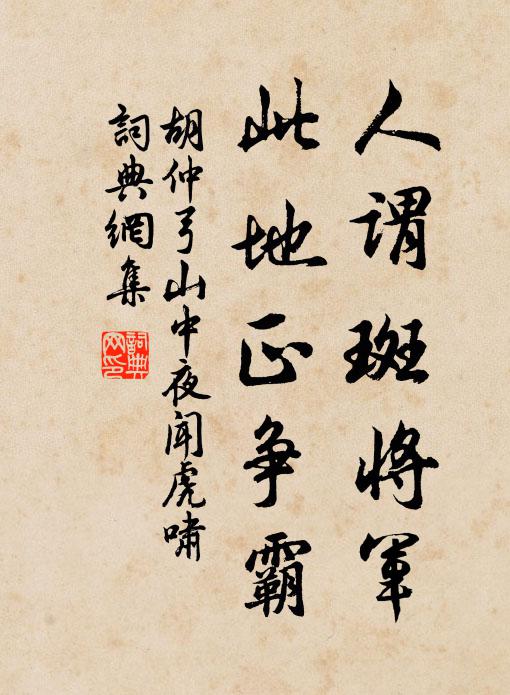 人谓斑将军
此地正争霸
胡仲弓山中夜闻虎啸
词典網集
詞典网印